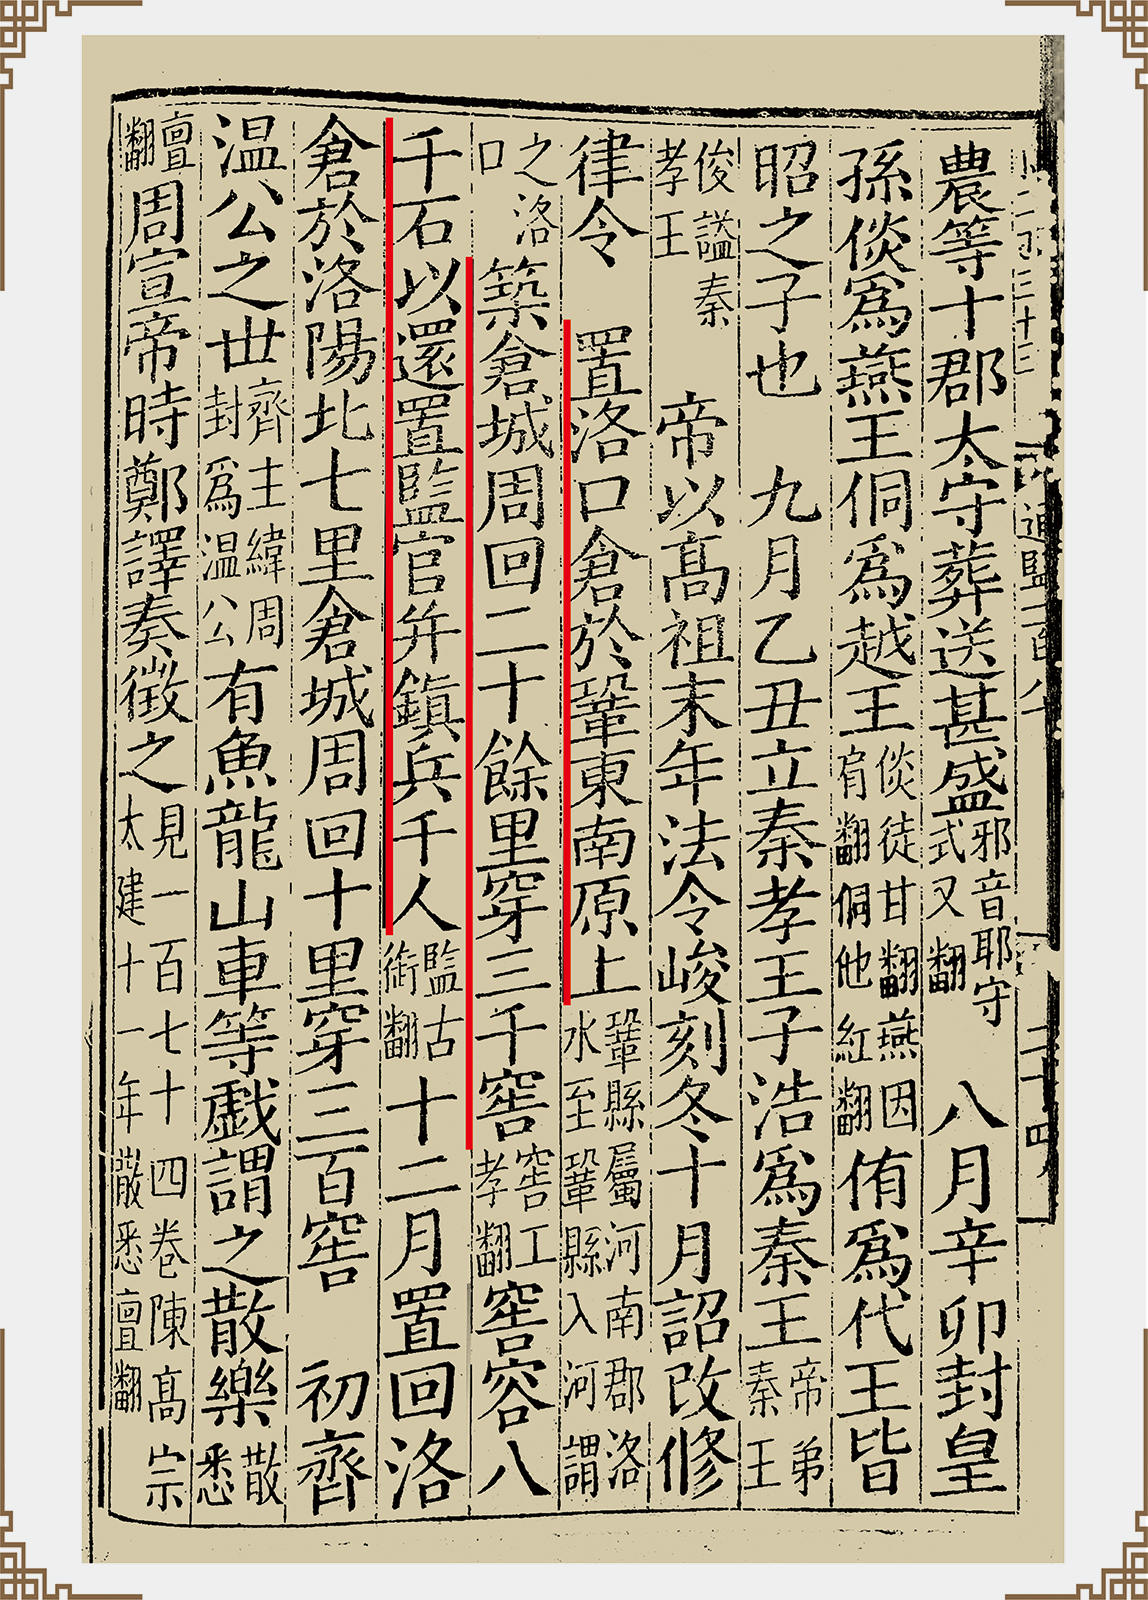 農等十郡太守葬送甚盛邪音耶守式又翻 八月辛卯封皇
孫倓爲燕王侗爲越王倓徒甘翻燕因肩翻侗他紅翻侑爲代王皆
昭之子也 九月乙丑立秦孝王子浩爲秦王帝弟秦王
俊謚秦孝王 帝以髙祖末年法令峻刻冬十月詔改修
律令 置洛口倉於鞏東南原上鞏縣屬河南郡洛水至鞏縣入河謂
之洛口築倉城周回二十餘里穿三千窖窖工孝翻窖容八
千石以還置監官并鎮兵千人監古銜翻十二月置回洛
倉於洛陽北七里倉城周回十里穿三百窖 初齊
温公之世齊主緯周封爲温公有魚龍山車等戯謂之散樂散悉
亶翻周宣帝時鄭譯奏徵之見一百七十四卷陳髙宗太建十一年散悉亶翻